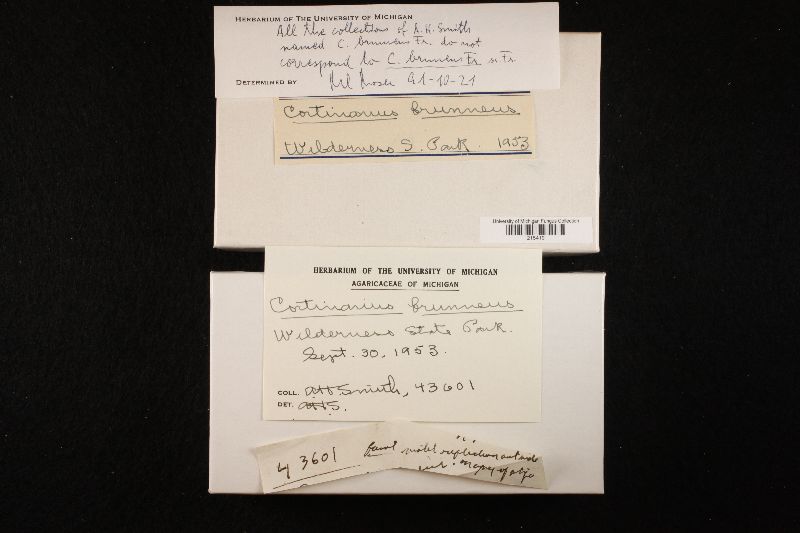 HERBARIUM OF THE UNIVERSITY OF MICHIGAN
All the collections of A.H. Smith
named C. brunneus Fr. do not
correspond to C. brunneus Fr. ss. Fr.
DETERMINED BY
Cortinarius brunneus
Wilderness S. Park. 1953
University of Michigan Fungus Collection
HERBARIUM OF THE UNIVERSITY OF MICHIGAN
AGARICACEAE OF MICHIGAN
Cortinarius brunneus
Wilderness State Park.
Sept. 30, 1953.
COLL. AHSmith, 43601
DET. AHS.
43601 faint violet reflection